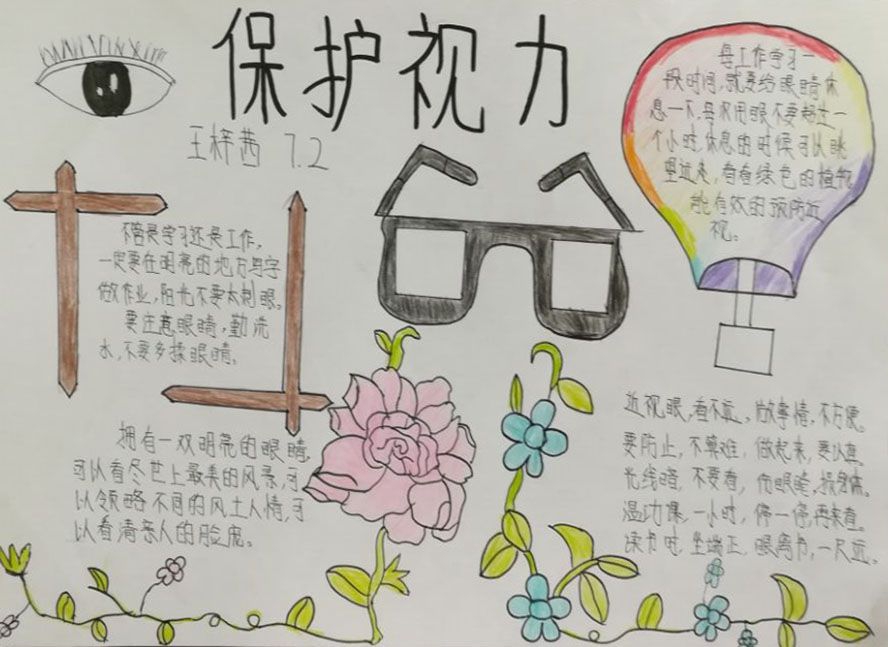 保护视力
王梓茜 7.2
每工作学习一
段时间，就要给眼睛休
息一下，每次用眼不要超过一
个小时，休息的时候可以眺
望远处，看看绿色的植物
能有效的预防近
视。
不管是学习还是工作，
一定要在明亮的地方写字
做作业，阳光不要太刺眼。
要注意眼睛，勤洗
水，不要多揉眼睛。
拥有一双明亮的眼睛，
可以看尽世上最美的风景，可
以领略不同的风土人情，可
以看清亲人的脸庞。
近视眼，看不远，做事情，不方便。
要防止，不算难，做起来，要认真
光线暗，不要看，伤眼睛，损身体。
温功课，一小时，停一停，再来看。
读书时，坐端正，眼离书，一尺远。